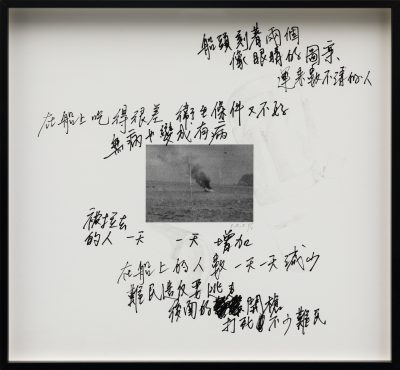 船頭刻著兩個
像眼睛的圖案
運來數不清的人
在船上吃得很差 衛生條件又不好
無病也變成有病
被拉去
的人一天 一天 增加
在船上的人數一天一天減少
難民
後面的 開槍
打死 不少難民